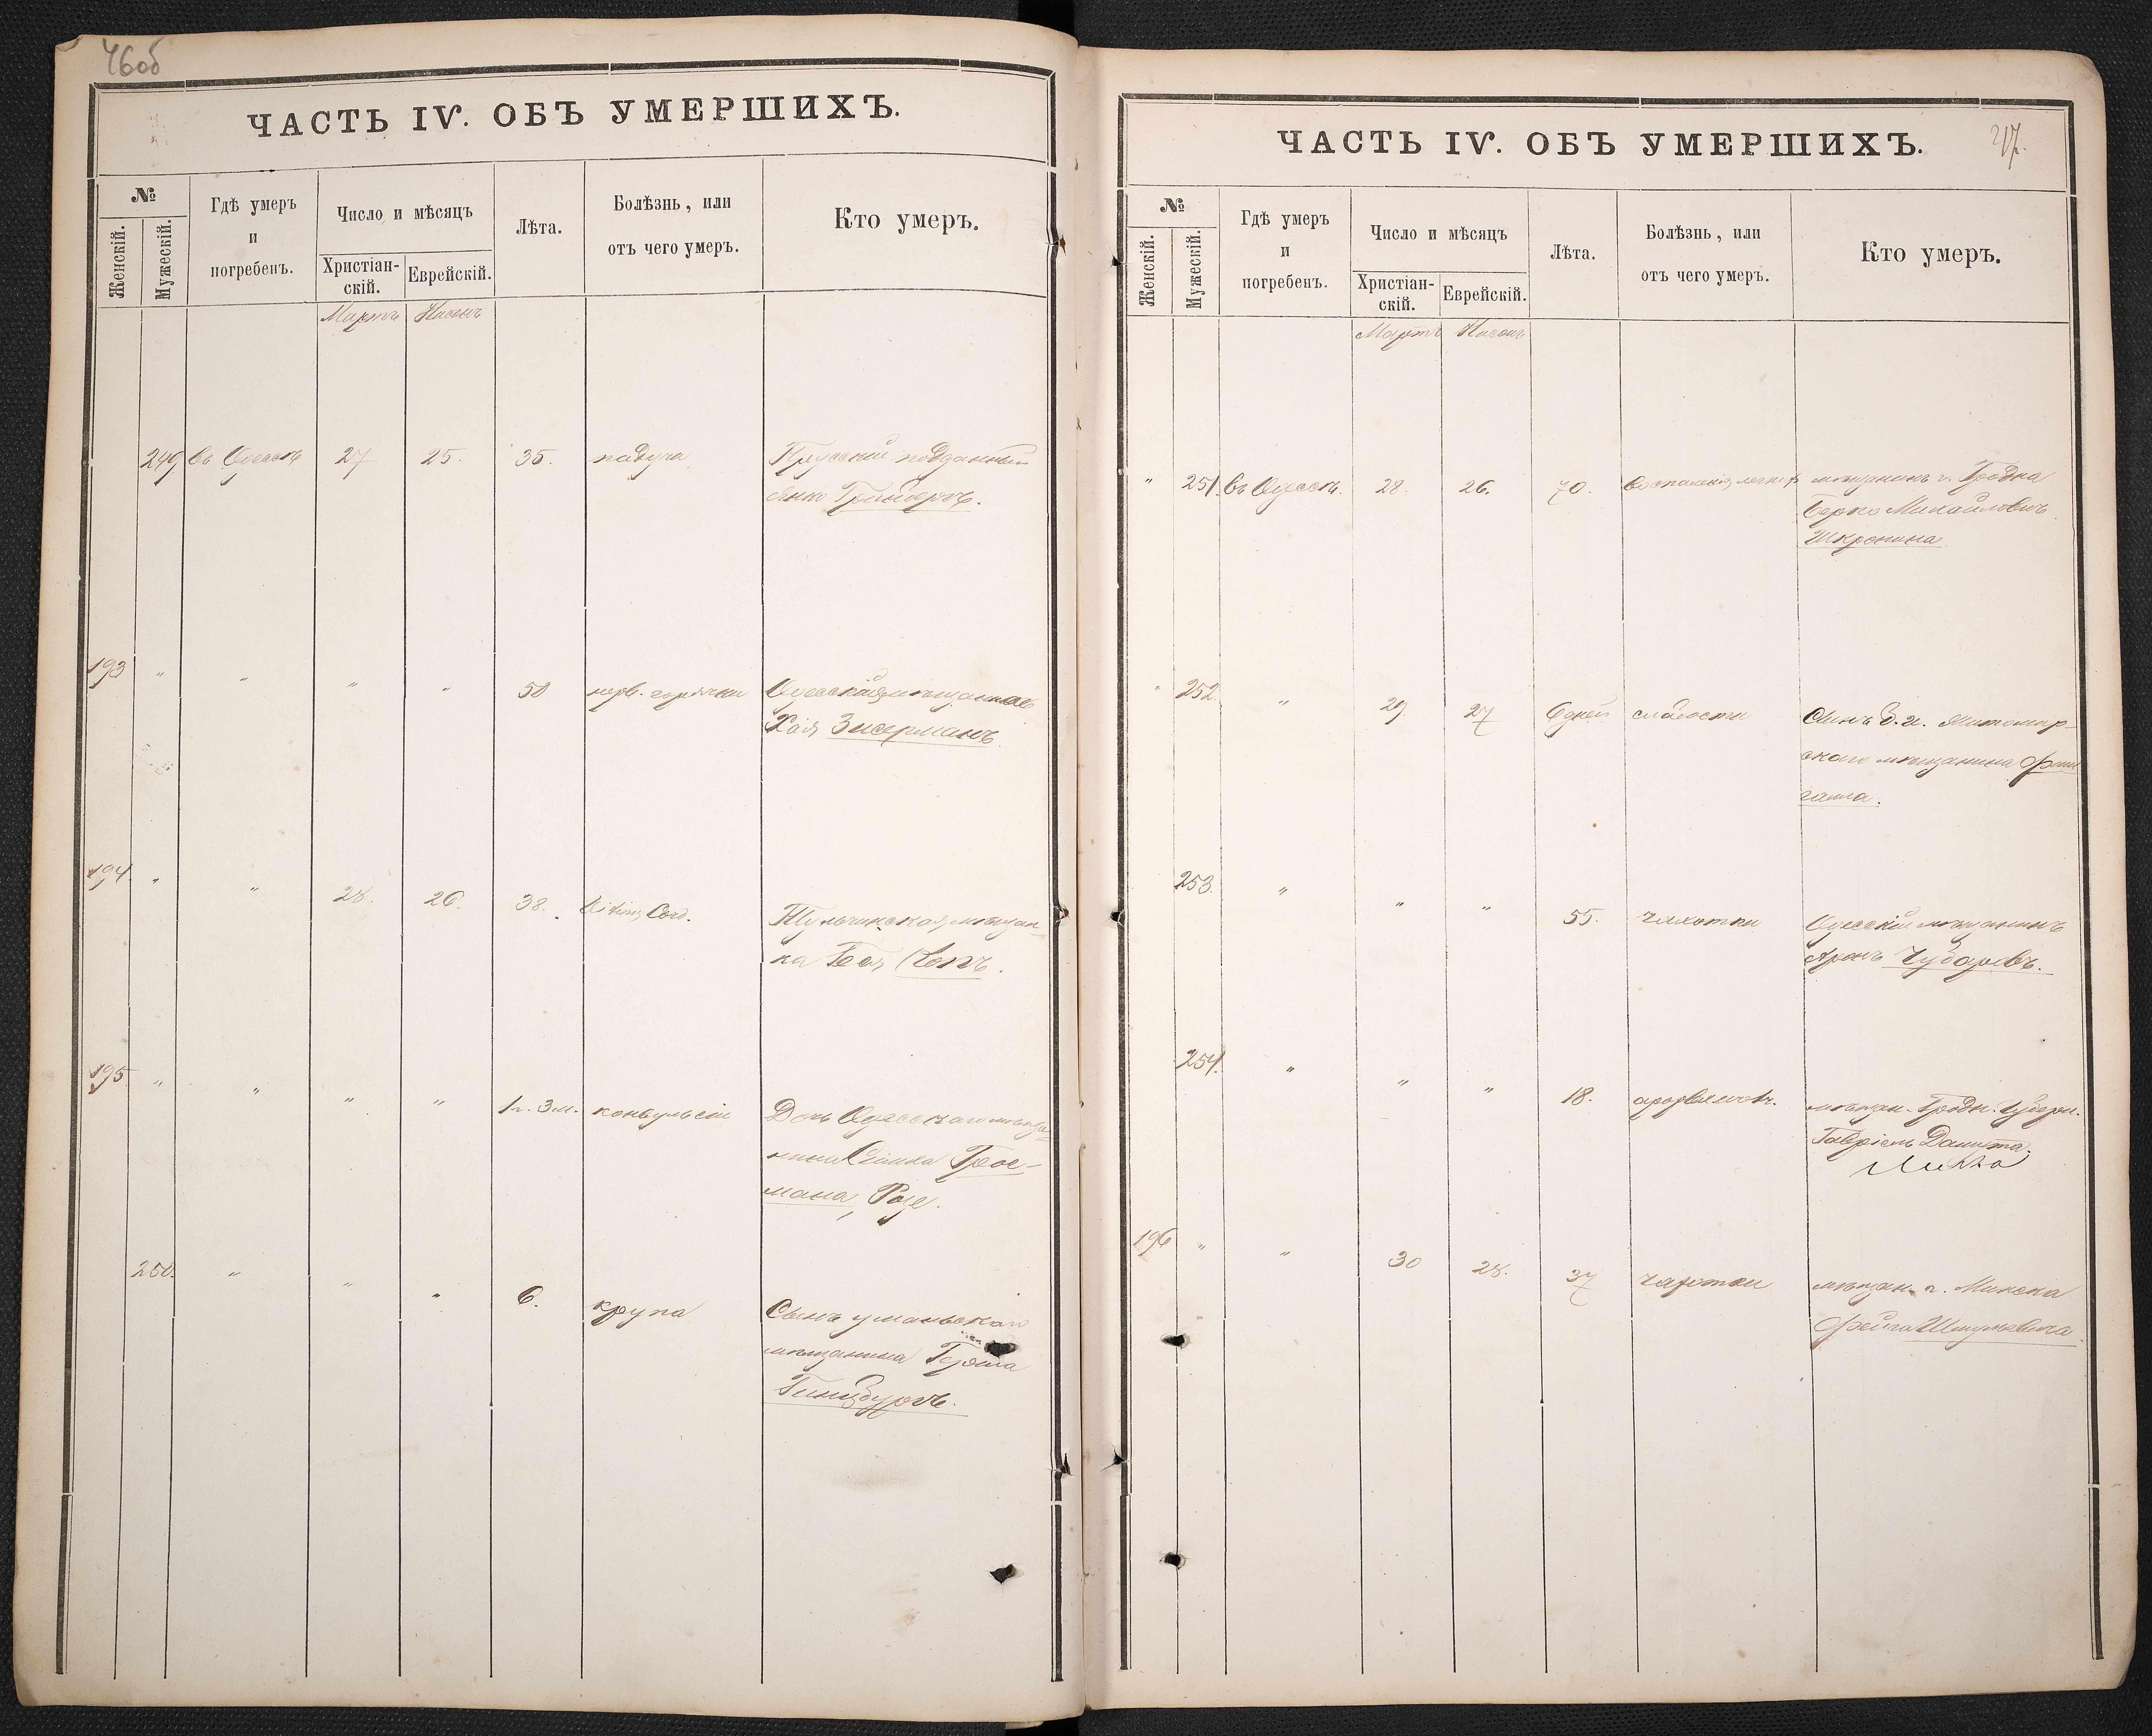 46об
ЧАСТЬ IV. ОБЪ УМЕРШИХЪ.
№
Женскій.
Мужескій.
Гдѣ умеръ
и
погребенъ.
Число и мѣсяцъ
Христіан-
скій.
Еврейскій.
Лѣта.
Болѣзнь, или
отъ чего умеръ.
Кто умеръ.
Мартъ Нисонъ
249 въ Одессѣ 27 25. 35. падучи Прусскій подданный
193 " " " " 50 нерв. горячки Одесская мѣщанка
Хая Зисерманъ
194. " " 28. 26. 38. Vitium Cord. Тульчинская мѣщан-
ка Бея
195. " " " " 1 г. 3 м. конвульсіи Дочь Одесскаго мѣща-
нина
мана, Розе.
250. " " " 6. крупа Сынъ уманьскаго
мѣщанина Герша
Гинцбургъ.
ЧАСТЬ IV. ОБЪ УМЕРШИХЪ.
47.
№
Женскій.
Мужескій.
Гдѣ умеръ
и
погребенъ.
Число и мѣсяцъ
Христіан-
скій.
Еврейскій.
Лѣта.
Болѣзнь, или
отъ чего умеръ.
Кто умеръ.
Мартъ Нисонъ
" 251. въ Одессѣ. 28. 26. 70. Воспаленія легкихъ мѣщанинъ г. Гродна
Берко Михайловичъ
Шкропина
" 252. " 29 27 6 дней слабости Сынъ б. и. Житомир-
скаго мѣщанина
253. " " " 55. чахотки Одесскій мѣщанинъ
Аронъ Чубаревъ.
254. " " " 18. мѣщан. Гродн. Губерн.
Габріель
196 " " 30 28. 37 чахотки мѣщан. г. Минска
Фейга Шмулевича